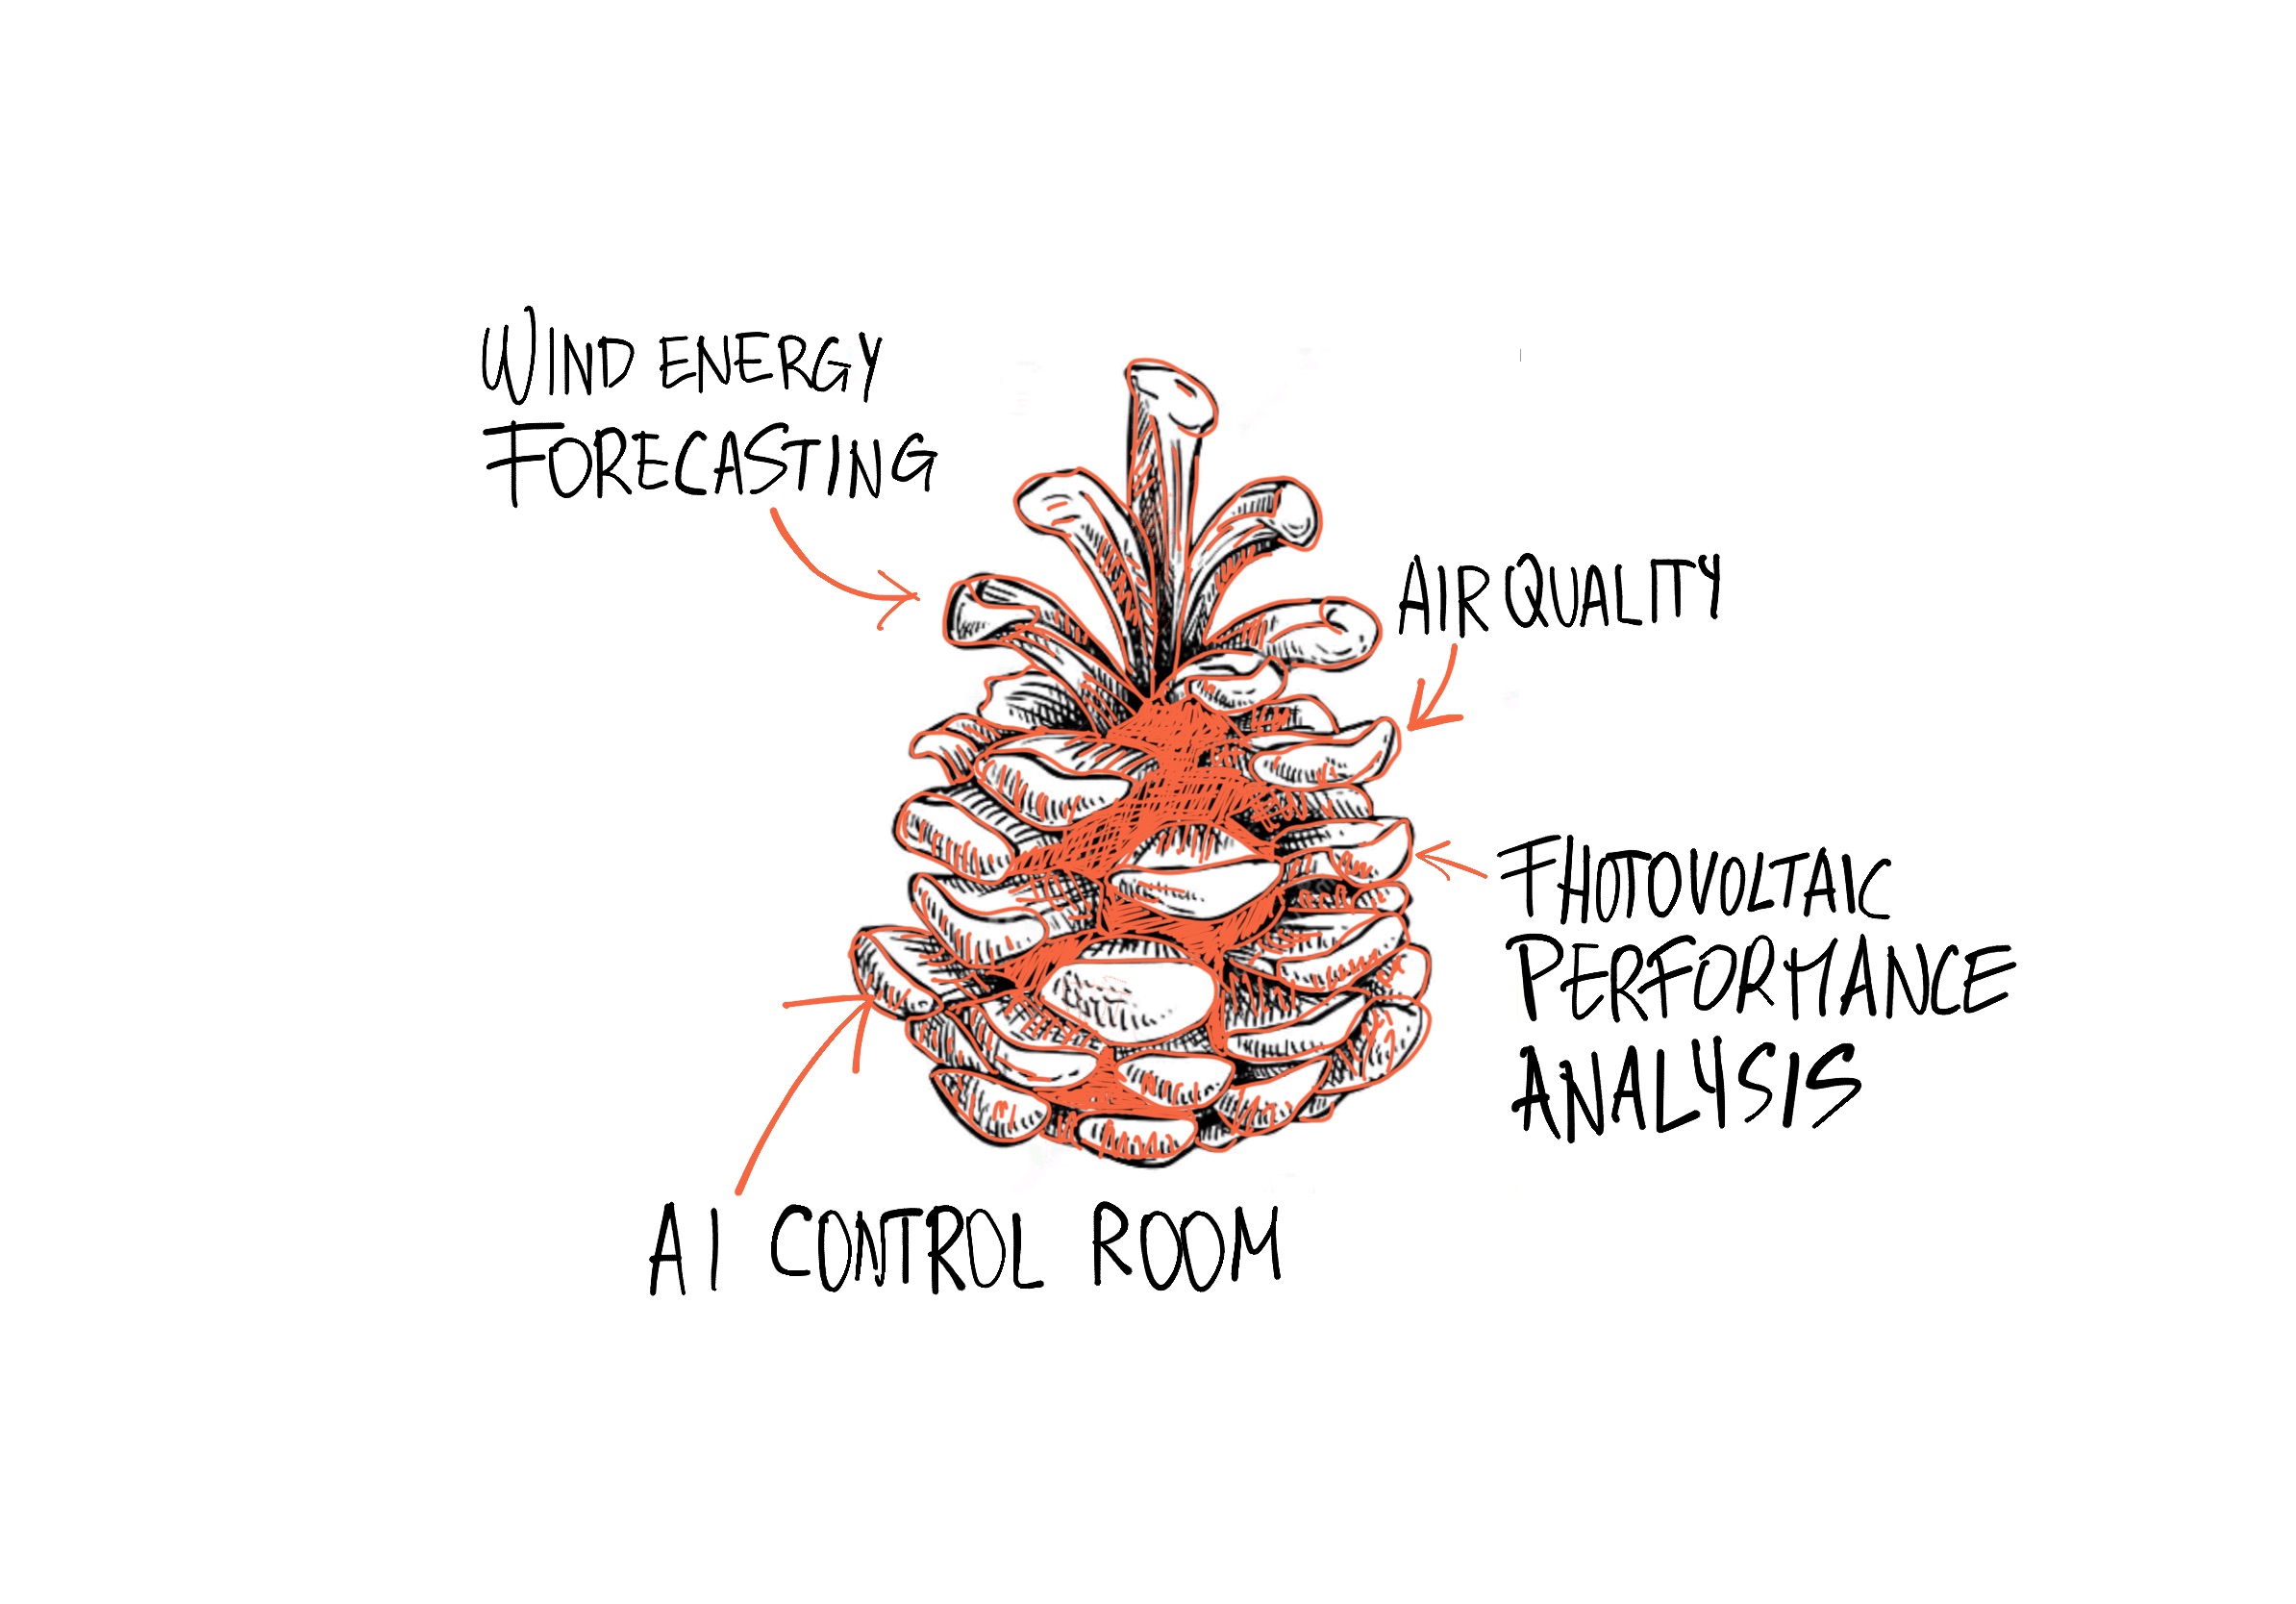 WIND ENERGY
FORECASTING
AIR QUALITY
FHOTOVOLTAIC
PERFORMANCE
ANALYSIS
AI CONTROL ROOM